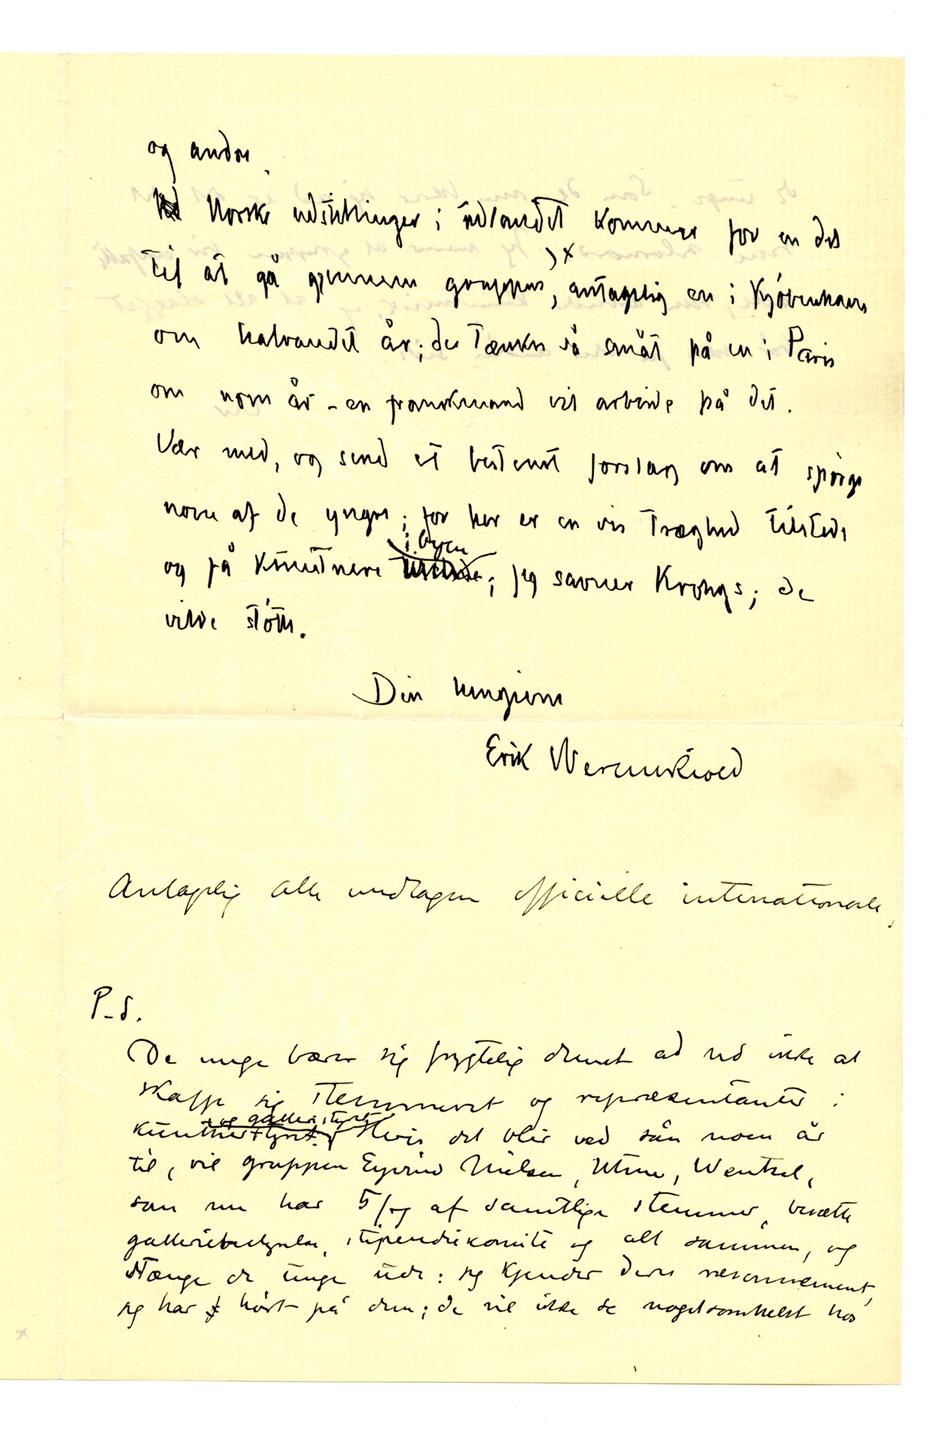 og andre.
Norske udstillinger i udlandet kommer for en del
til at gå gjennem gruppen, x antagelig en i Kjøbenhavn
om halvandet år; der tænkes så småt på en i Paris
om noen år – en franskmand vil arbeide på det.
Vær med, og send et bestemt forslag om at spørge
noen af de yngre; for her er en vis træghed tilstede
og få kunstnere i byen; jeg savner Krohgs; de
vilde støtte.
Din hengivne
Erik Werenskiold
Antagelig alle undtagen officielle internationale,
P.S.
De unge bærer sig frygtelig dumt ad ved ikke at
skaffe sig stemmeret og repræsentanter i
kunstnerstyret og galleristyret. Hvis det blir ved sån noen år
til, vil gruppen Eyvind Nielsen, Utne, Wentzel,
som nu har 5/7 af samtlige stemmer, besætte
galleribestyrelse, stipendiekomité og alt sammen, og
stænge de unge ude: jeg kjender deres resonnement,
jeg har hørt på dem; de vil ikke se nogetsomhelst hos